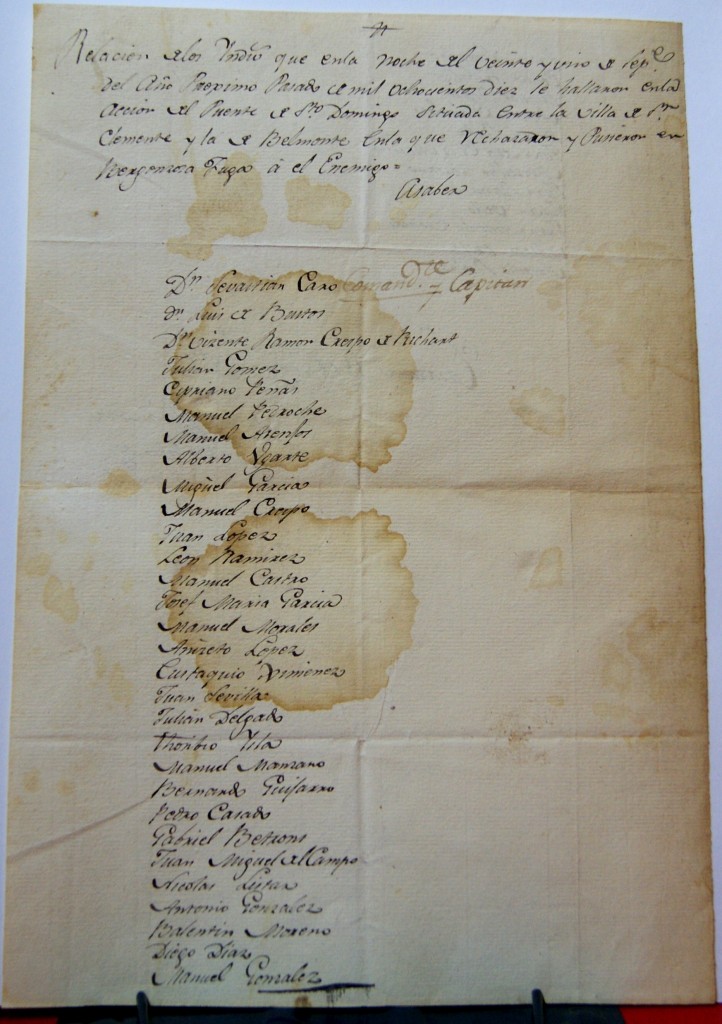 Relacion de los Yndivs que en la noche del veinte y uno de Sepre
del Año Proximo Pasado de mil ochocientos diez se hallaron en la
accion del Puente de Sto Domingo Situada Entre la villa de Sn
Clemente y la de Belmonte En la que Rechazaron y Pusieron en
Vergonzosa Fuga á el Enemigo=
Asaber
Dn Sevastian Caro Comandte y Capitan
dn Luis de Bustos
Dn Vizente Ramon Crespo de Richart
Julian Gomez
Cipriano Peñas
Manuel Pedroche
Manuel
Alberto Ugarte
Miguel Garcia
Manuel Crespo
Juan Lopez
Leon Ramirez
Manuel Castro
Josef Maria Garcia
Manuel Morales
Lopez
Eustaquio Ximenez
Juan Sevilla
Julian Delgado
Thoribio
Manuel Manzano
Bernardo Guijarro
Pedro Casado
Gabriel Betrons
Juan Miguel del Campo
Nicolas
Antonio Gonzalez
Balentin Moreno
Diego Diaz
Manuel Gonzalez